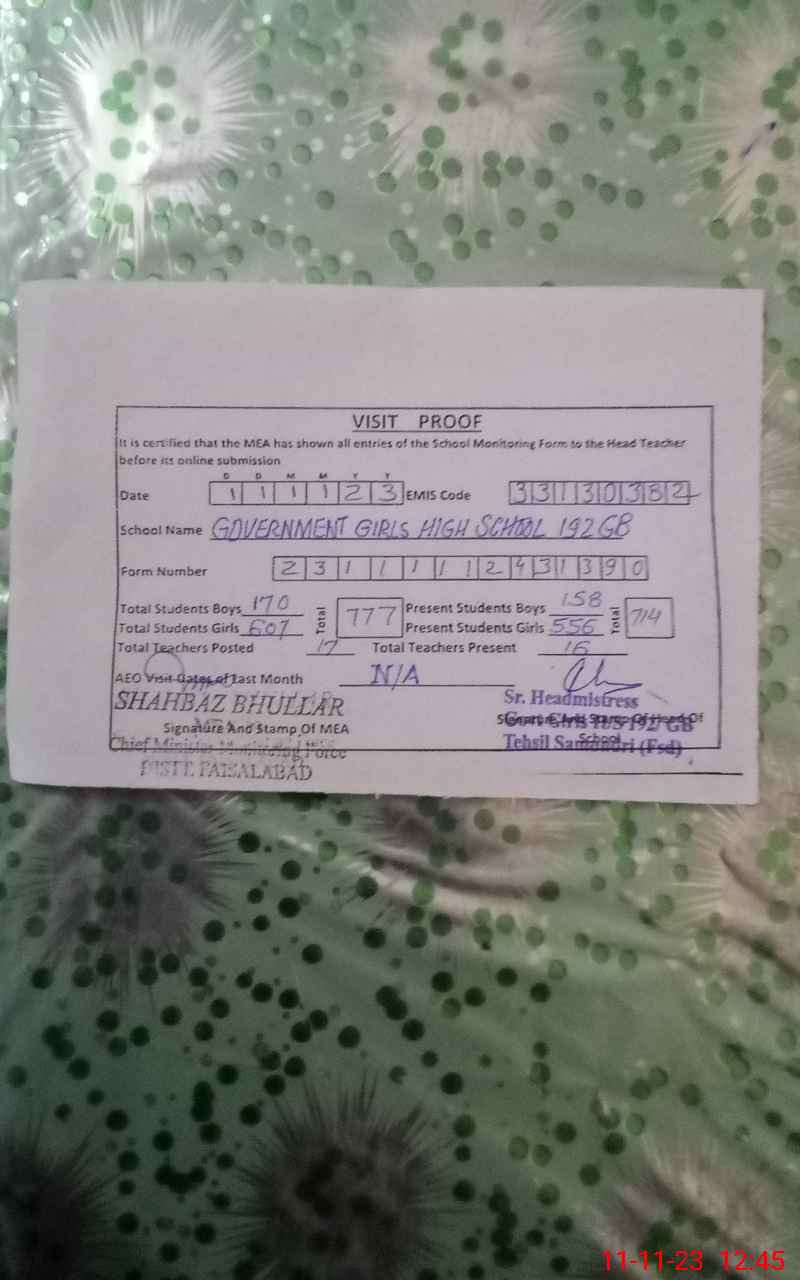 VISIT PROOF
It is certified that the MEA has shown all entries of the School Monitoring Form to the Head Teacher
before its online submission
D D M M Y Y
Date 1 1 1 1 2 3 EMIS Code 3 3 1 3 0 3 8 2
School Name GOVERNMENT GIRLS HIGH SCHOOL 192 GB
Form Number 2 3 1 1 1 1 1 2 4 3 1 3 9 0
Total Students Boys 170 Total 777 Present Students Boys 158 Total 714
Total Students Girls 607 Present Students Girls 556
Total Teachers Posted 17 Total Teachers Present 16
AEO Visit Dates of Last Month N/A
SHAHBAZ BHULLAR Sr. Headmistress
Signature And Stamp Of MEA Signature And Stamp Of Head Of
Govt. Girls H/S 192/GB
School
Chief Minister Monitoring Force Tehsil Samundri (Fsd)
DISTT. FAISALABAD
11-11-23 12:45